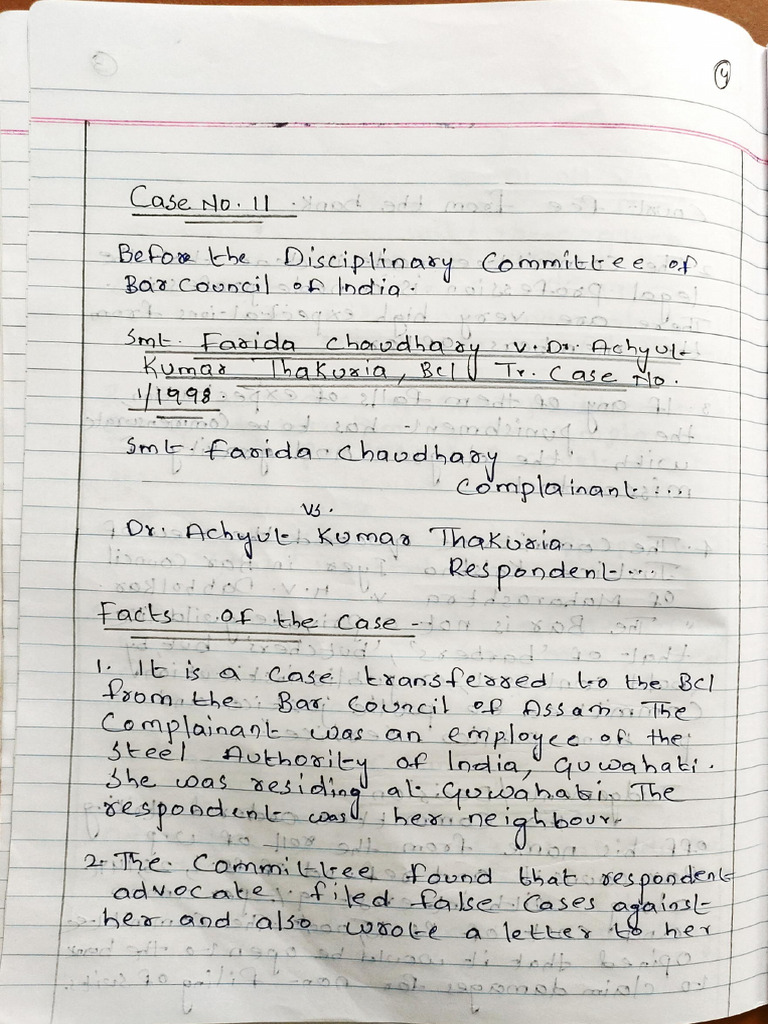 4
Case No. 11.
Before the Disciplinary Committee of
Bar Council of India.
Smt. Farida Chaudhary v. Dr. Achyut
Kumar Thakuria, BCI Tr. Case No.
1/1998.
Smt. Farida Chaudhary
Complainant...
vs.
Dr. Achyut Kumar Thakuria
Respondent...
Facts of the case -
1. It is a case transferred to the BCI
from the Bar Council of Assam. The
Complainant was an employee of the
Steel Authority of India, Guwahati.
She was residing at Guwahati. The
respondent was her neighbour.
2. The Committee found that respondent
advocate filed false cases against
her and also wrote a letter to her